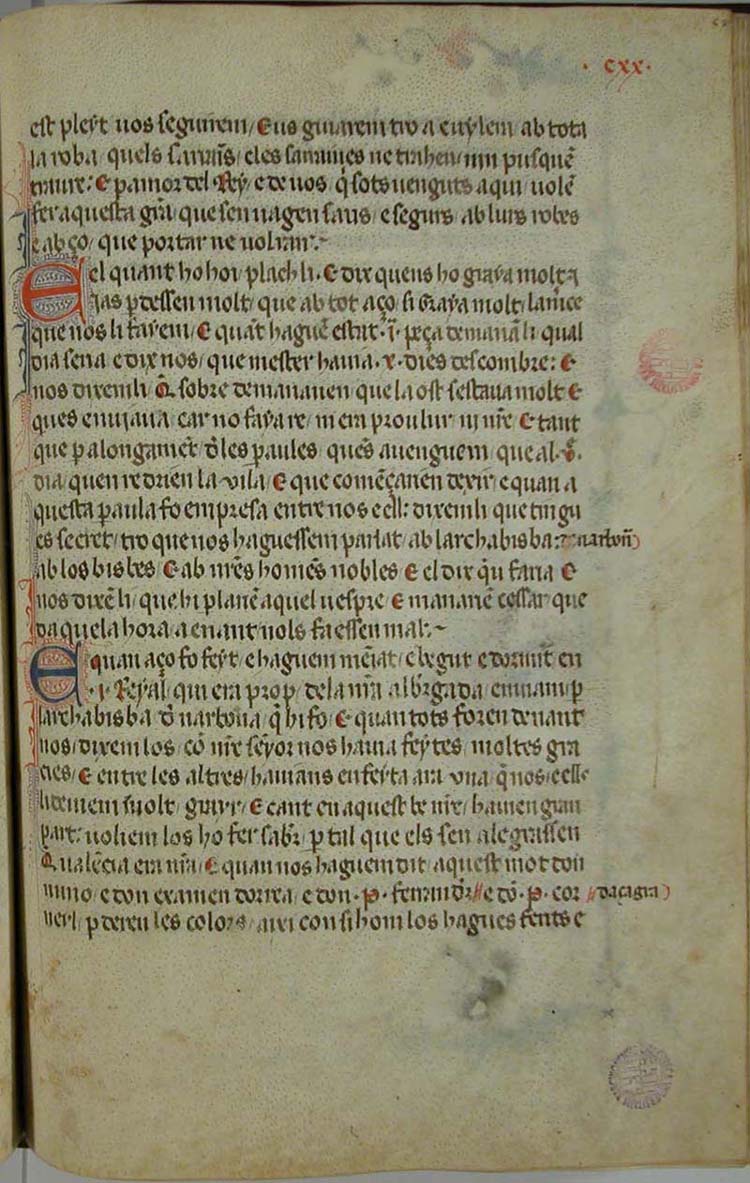 · cxx ·
est pleyt uos seguirem / E us guiarem tro a cuylera ab tota
la roba quels sarrains / e les sarraines ne traben / nin pusquē
traure: E p amor del Rey / e de uos q̄ sots uenguts aqui uolē
fer aquesta gr̄a que sen uagen sauls e segurs ab lurs robes
e ab ço / que portar ne uolran :~
E el quant ho hoy / plach li . E dix quens ho graya molt
ias p̄dessen molt / que ab tot aço / si graya molt / la mce
que nos li fayem / E quāt haguē estat .i. peça demanā li qual
dia seria e dix nos / que mester hauia .x. dies descombre: E
nos dixem li Q̄ sobre demanauen que la ost sestaua molt E
ques enuiaua / car no faya re / ni era prou lur ni nr̄e E tant
que p alongamēt d̄ les paules ques auenguem que al .v.
dia / quen redrien la vila / E que comēçarien dexir / e quan a
questa paula fo empresa entre nos e ell: dixem li que tingu
es secret / tro que nos haguessem parlat ab larchabisba: narbon̄
ab los bisbes E ab nr̄es homēs nobles E el dix q̄u faria E
nos dixē li / que hi plariē aquel uespre E manariē cessar que
daquela hora a enant nols faessen mal :~
E quan aço fo feyt e haguem mēiat / e begut e dormit en
.i. Reyal qui era prop de la nr̄a albergada enuiam p
larchabisba d̄ narbona q̄ hi fo / E quan tots foren deuant
nos / dixem los cō nr̄e seyor nos hauia feytes moltes gra
cies / E entre les altres / hauians en feyta ara vna q̄ nos / e elle
li deuiem molt grair / E cant en aquest be nr̄e / hauien gran
part: voliem los ho fer sabr̄ p tal que els sen alegrassen
Q̄ valēcia era nr̄a / E quan nos haguem dit aquest mot don
nuno e don examen dorrea / e don . P. ferrandz // e dō . P. cor // daçagra
neyl p̄deren les colors / axi con si hom los hagues ferits e